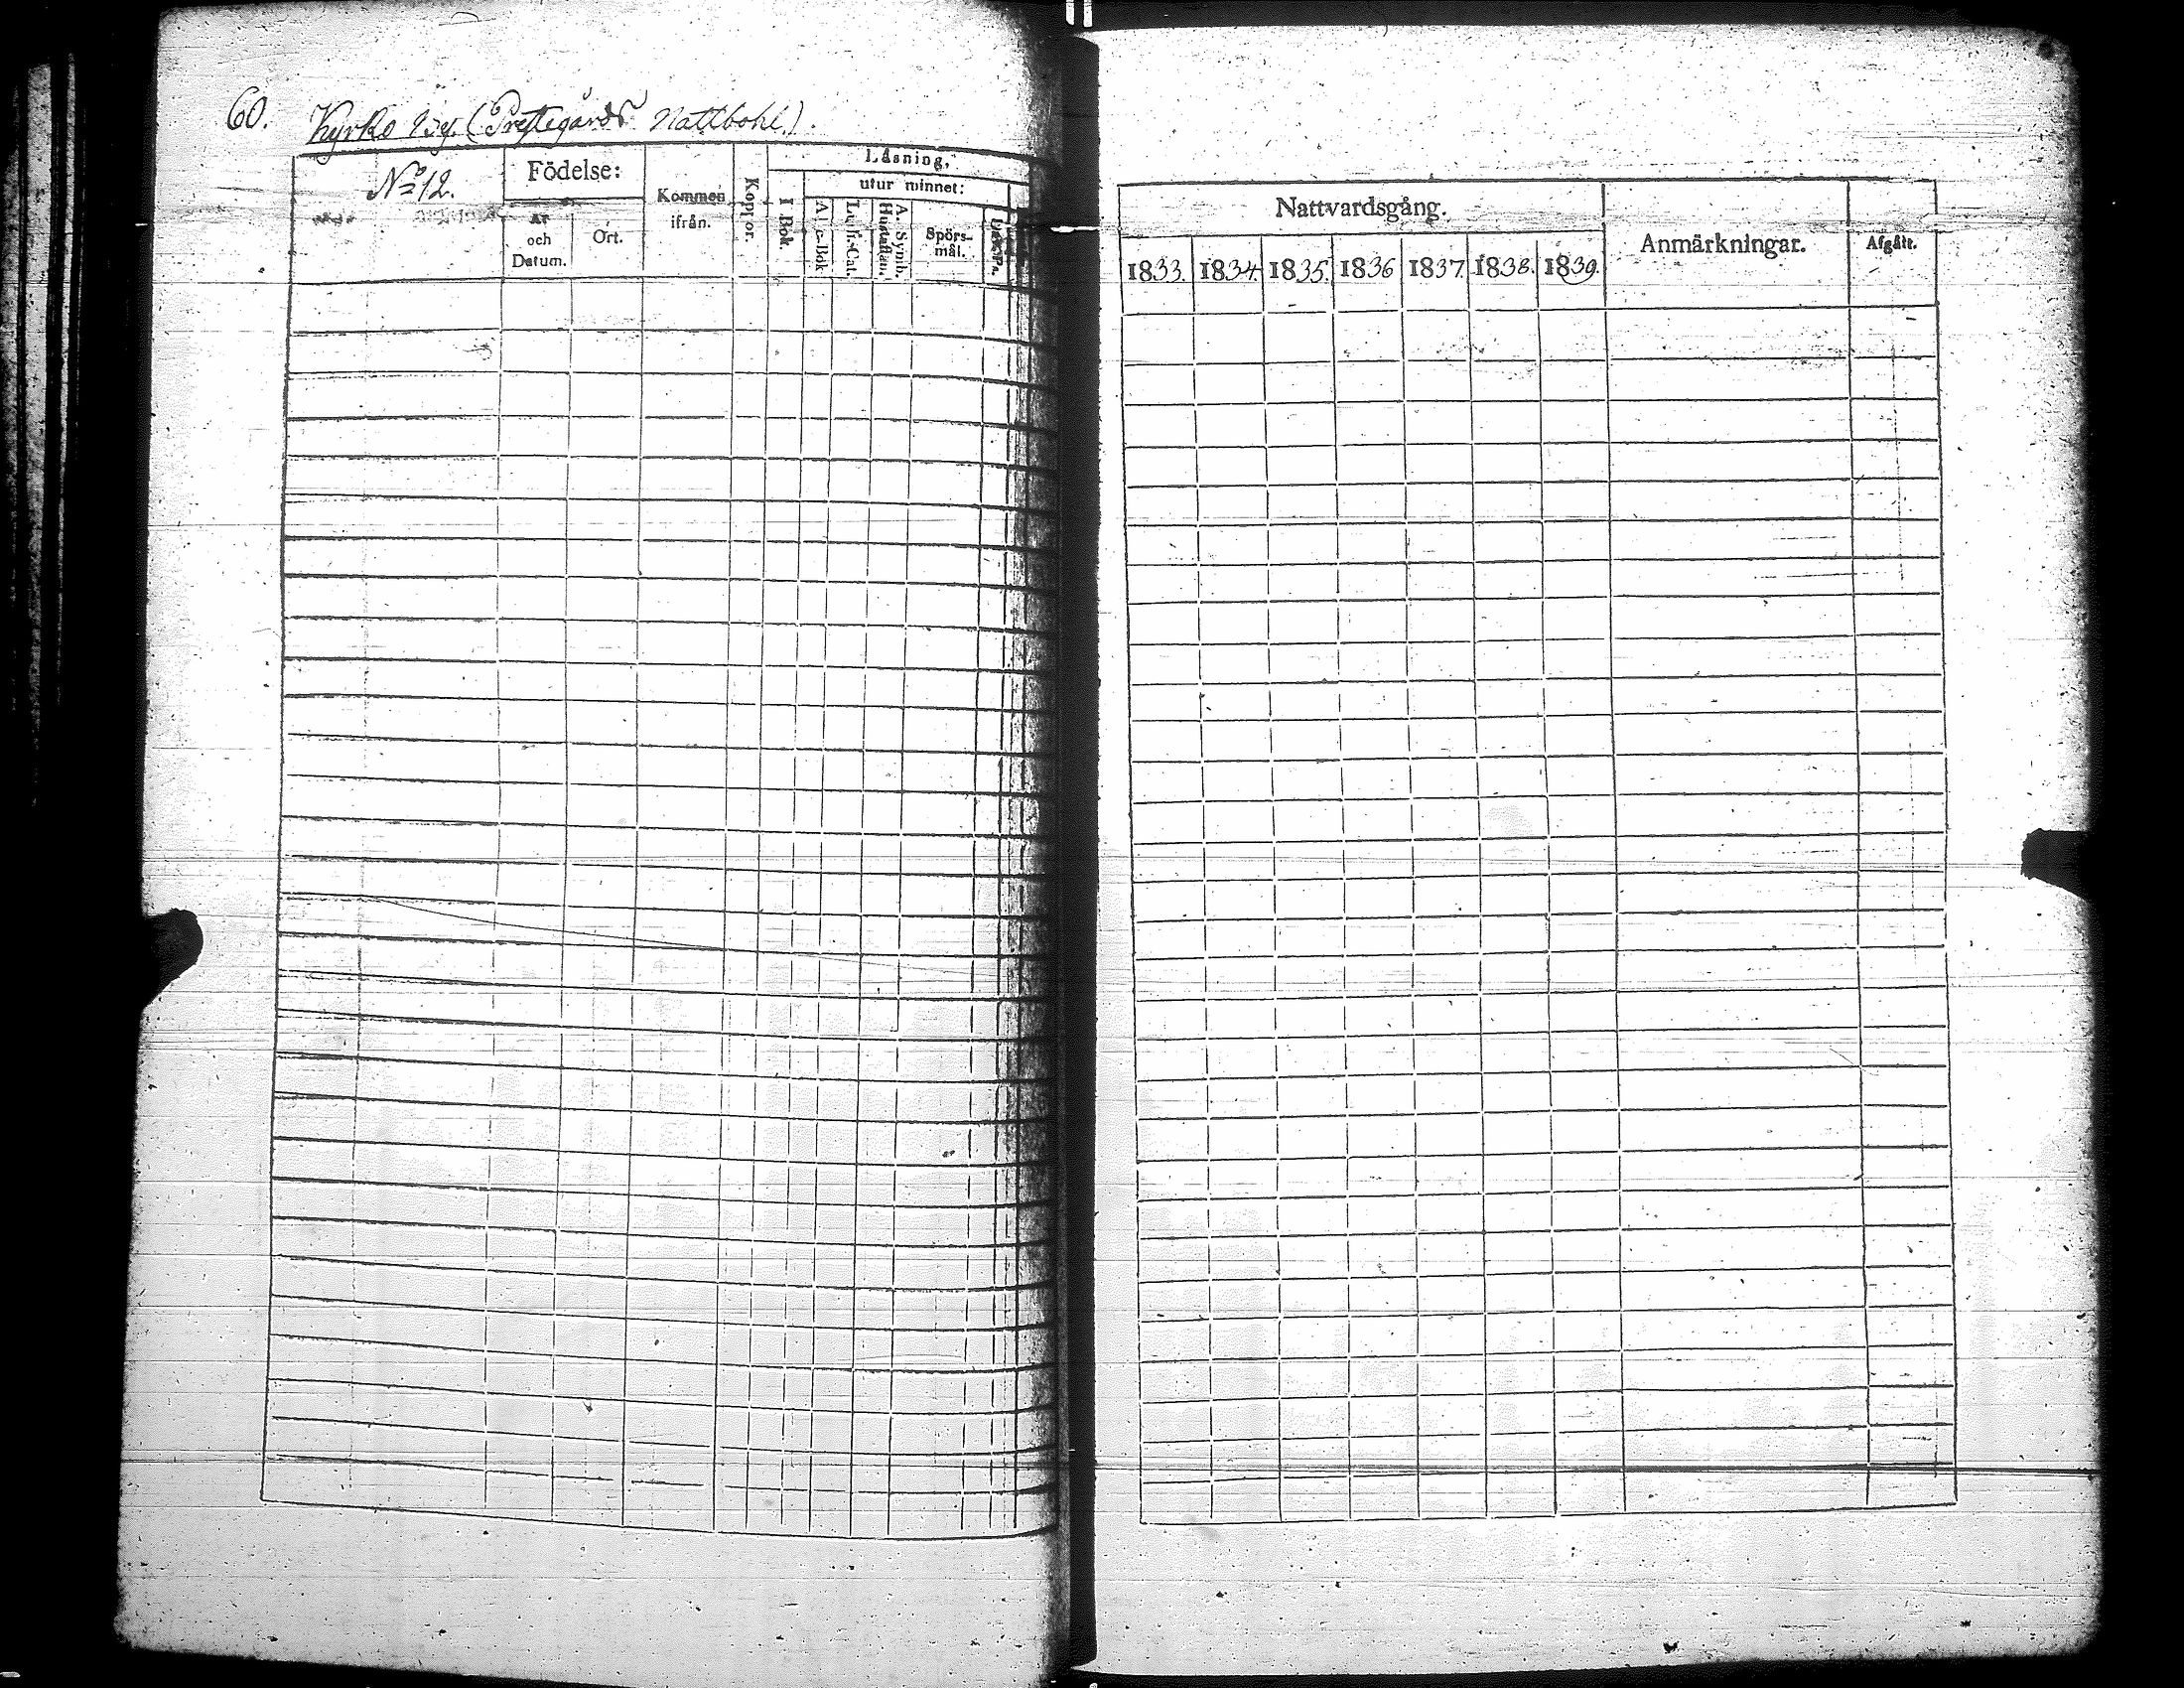 60. Kyrko by. (Prestegårds Nattbohl).
No 12.
Födelse:
År och Datum.
Ort.
Kommen ifrån.
Koppor.
Läsning,
I Bok.
utur minnet:
A b c-Bok
Luth. Cat.
A. Symb. Hustaflan.
Spörs-mål.
Nattvardsgång.
1833. 1834. 1835. 1836 1837. 1838. 1839.
Anmärkningar.
Afgått.